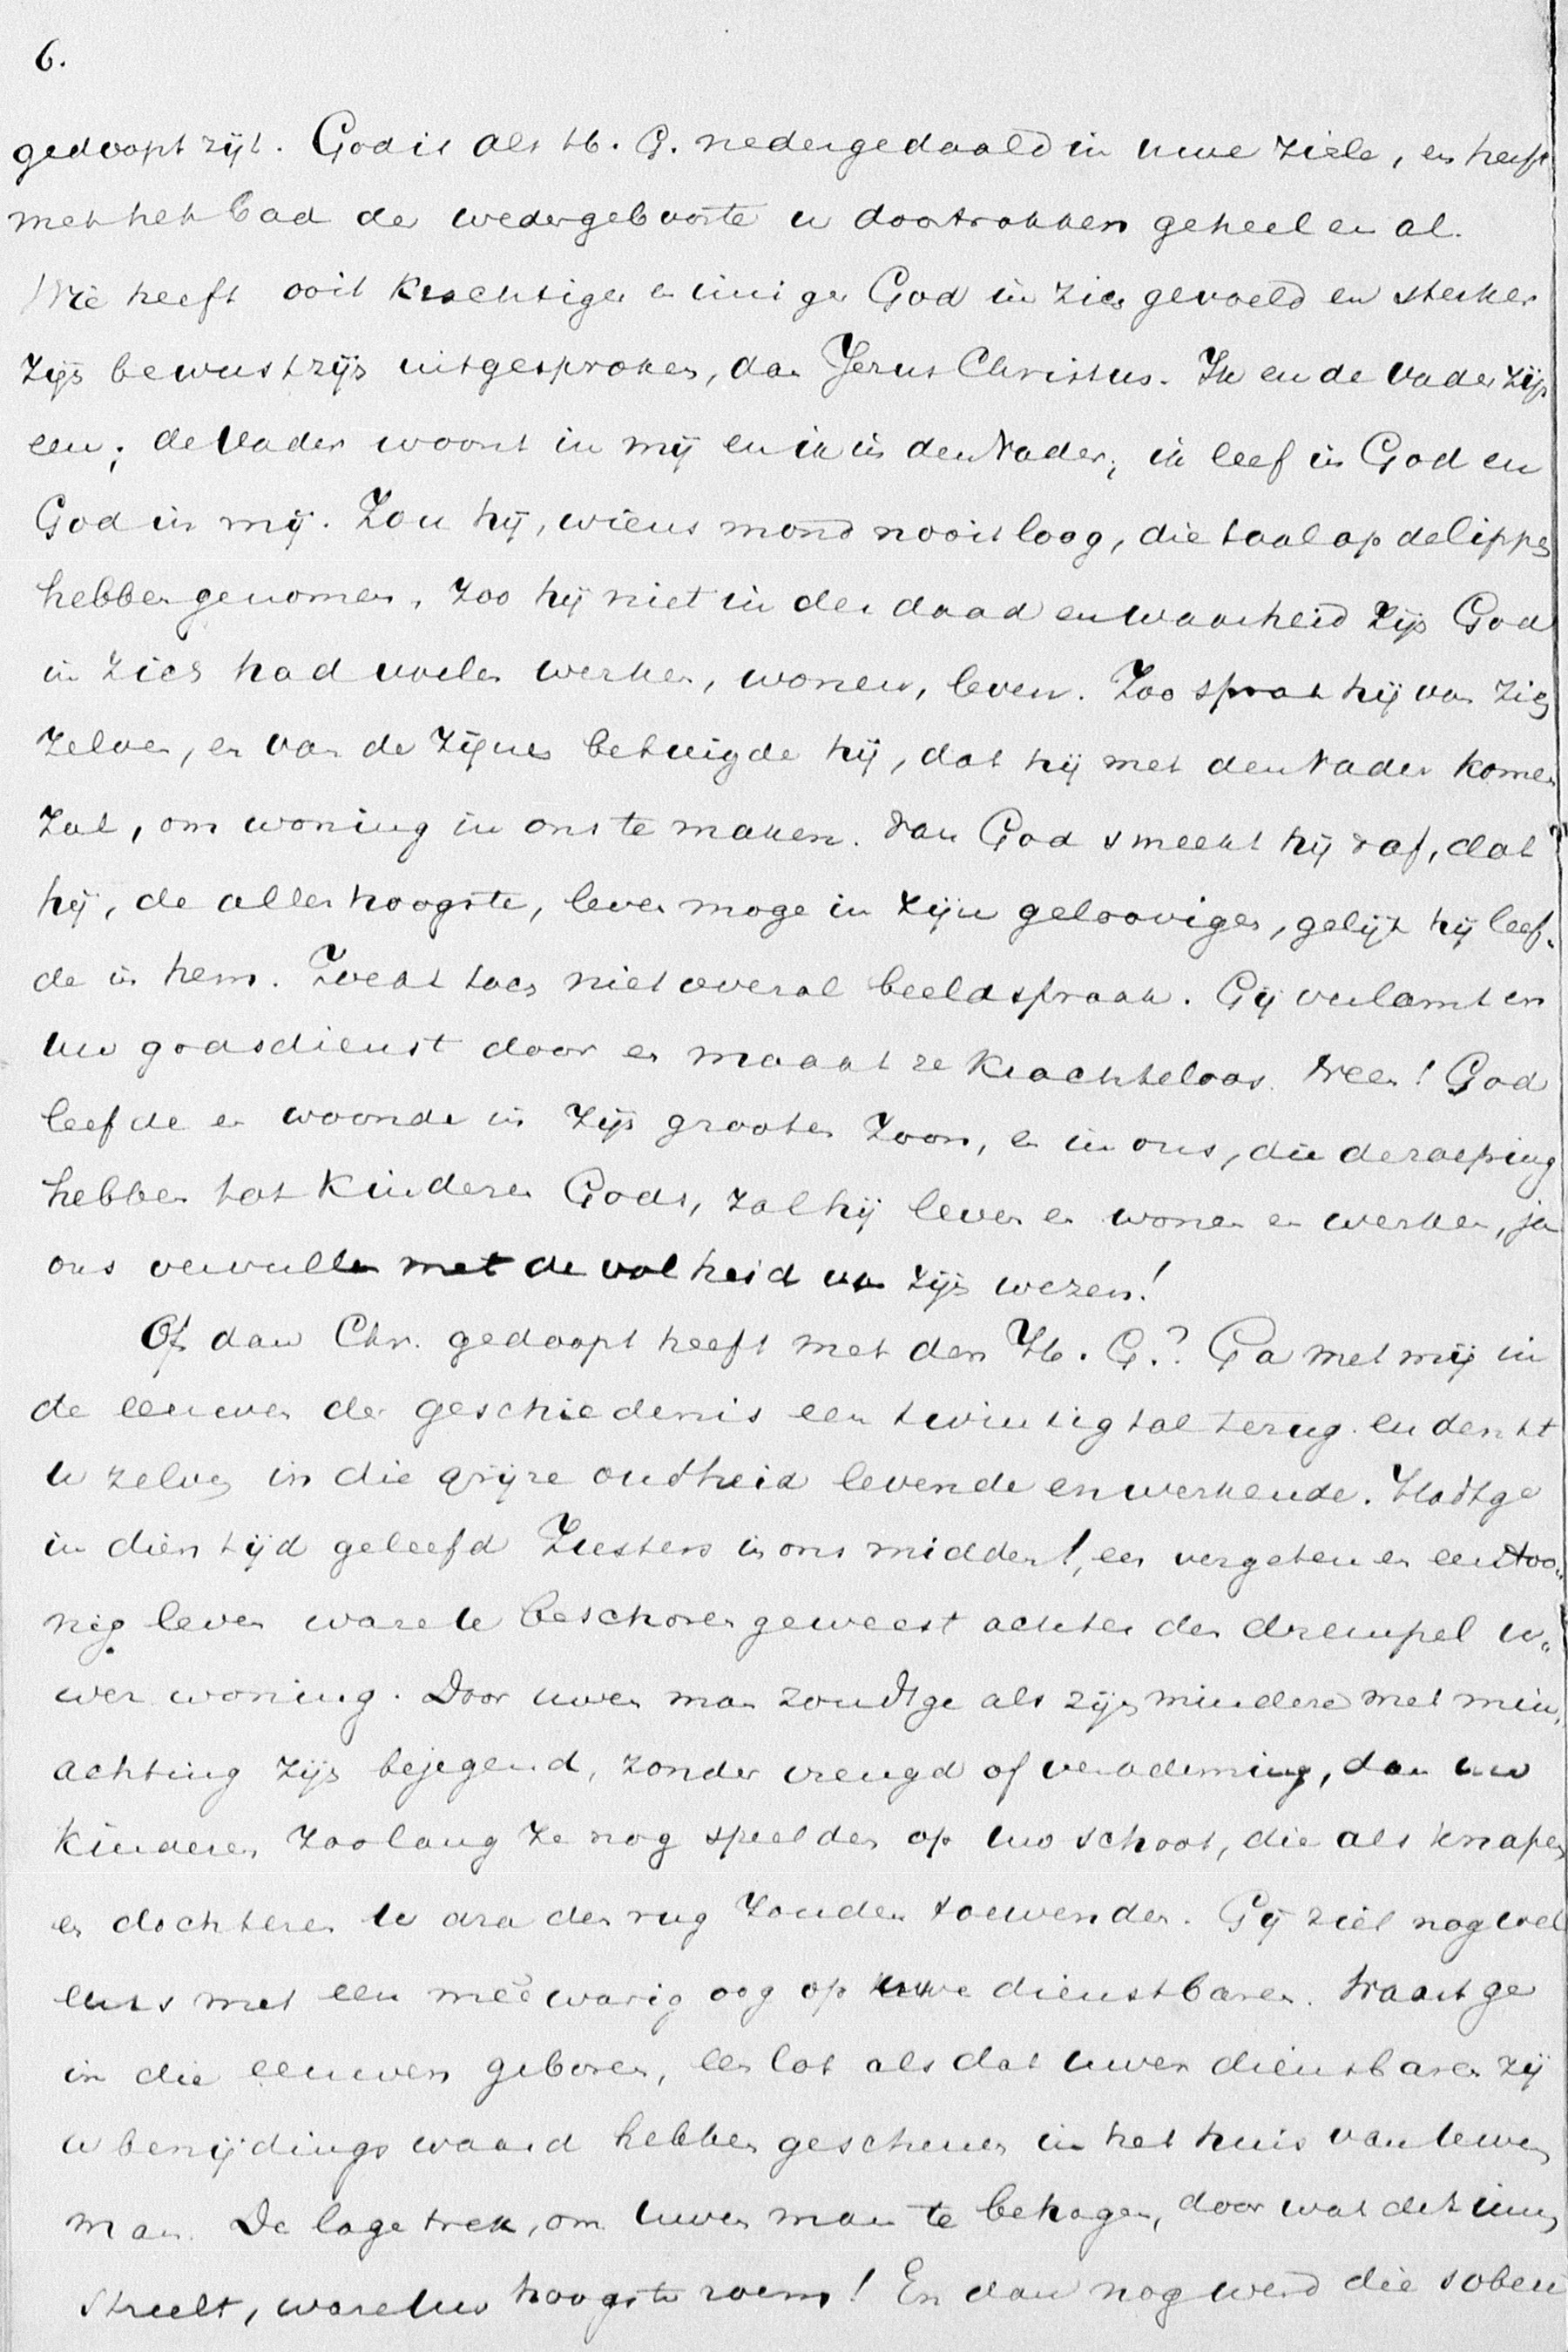 6.
gedoopt zijt. God is als H. G. nedergedaald in uwe ziele, en heeft
met het bad der wedergeboorte u doortrokken geheel en al.
Wie heeft ooit krachtiger en inniger God in zich gevoeld en sterker
zijn bewustzijn uitgesproken, dan Jezus Christus. Ik en de Vader zijn
een; de Vader woont in mij en ik in den Vader; ik leef in God en
God in mij. Zou hij, wiens mond nooit loog, die taal op de lippen
hebben genomen, zoo hij niet in der daad en waarheid zijn God
in zich had voelen werken, wonen, leven. Zoo sprak hij van zich
zelven, en van de zijnen betuigde hij, dat hij met den Vader komen
zal, om woning in ons te maken. Van God smeekt hij 't af, dat
hij, de allerhoogste, leven moge in zijn geloovigen, gelijk hij leef-
de in hem. Zoekt toch niet overal beeldspraak. Gij verlamt er
uw godsdienst door en maakt ze krachteloos. Neen! God
leefde en woonde in zijn grooten Zoon, en in ons, die de roeping
hebben tot kinderen Gods, zal hij leven en wonen en werken, ja
ons vervullen met de volheid van zijn wezen!
Of dan Chr. gedoopt heeft met den H. G.? Ga met mij in
de eeuwen der geschiedenis een twintigtal terug en denkt
u zelven in die grijze oudheid levende en werkende. Hadt ge
in dien tijd geleefd Zusters in ons midden!, een vergeten en eentoo-
nig leven ware u beschoren geweest achter den drempel u-
wer woning. Door uwen man zoudt ge als zijn mindere met min-
achting zijn bejegend, zonder vreugd of verademing, dan uw
kinderen, zoolang ze nog speelden op uw schoot, die als knapen
en dochteren u dra den rug zouden toewenden. Gij ziet nog wel
eens met een meêwarig oog op uwe dienstbaren. Waart ge
in die eeuwen geboren, een lot als dat uwer dienstbaren zij
u benijdingswaard hebben geschenen in het huis van uwen
man. De lage trek, om uwen man te behagen, door wat de zinnen
streelt, ware uw hoogste roem! En dan nog werd die sobere